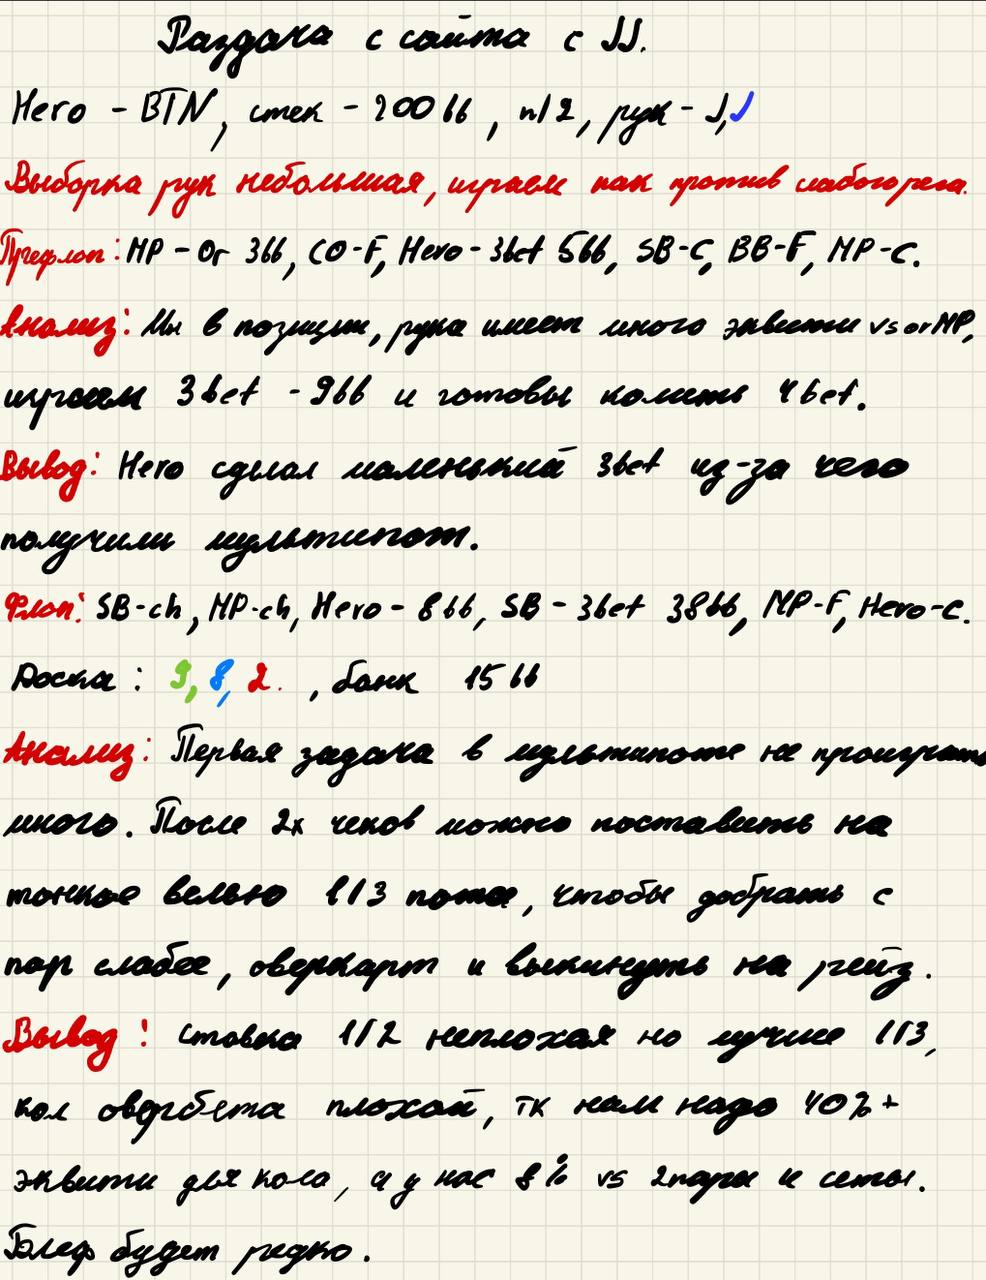 Раздача с сайта с JJ.
Hero - BTN, стек - 200 bb, nl2, рук - J,J
Выборка рук небольшая, играем как против слабого рега.
Префлоп: MP - Or 3bb, CO-F, Hero - 3bet 5bb, SB-C, BB-F, MP-C.
Анализ: Мы в позиции, рука имеет много эквити vs or MP,
играем 3bet - 9bb и готовы колить 4bet.
Вывод: Hero сделал маленький 3bet из-за чего
получили мультипот.
Флоп: SB-ch, MP-ch, Hero - 8bb, SB - 3bet 38bb, MP-F, Hero-C.
Доска : 9, 8, 2. , банк 15 bb
Анализ: Первая задача в мультипоте не проиграть
много. После 2х чеков можно поставить на
тонкое велью 1/3 пота, чтобы добрать с
пар слабее, оверкарт и выкинуть на рейз.
Вывод! Ставка 1/2 неплохая но лучше 1/3,
кол овербета плохой, тк нам надо 40%+
эквити для кола, а у нас 8% vs 2пары и сеты.
Блеф будет редко.